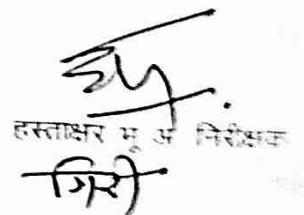 हस्ताक्षर भू अ निरीक्षक
गिरी